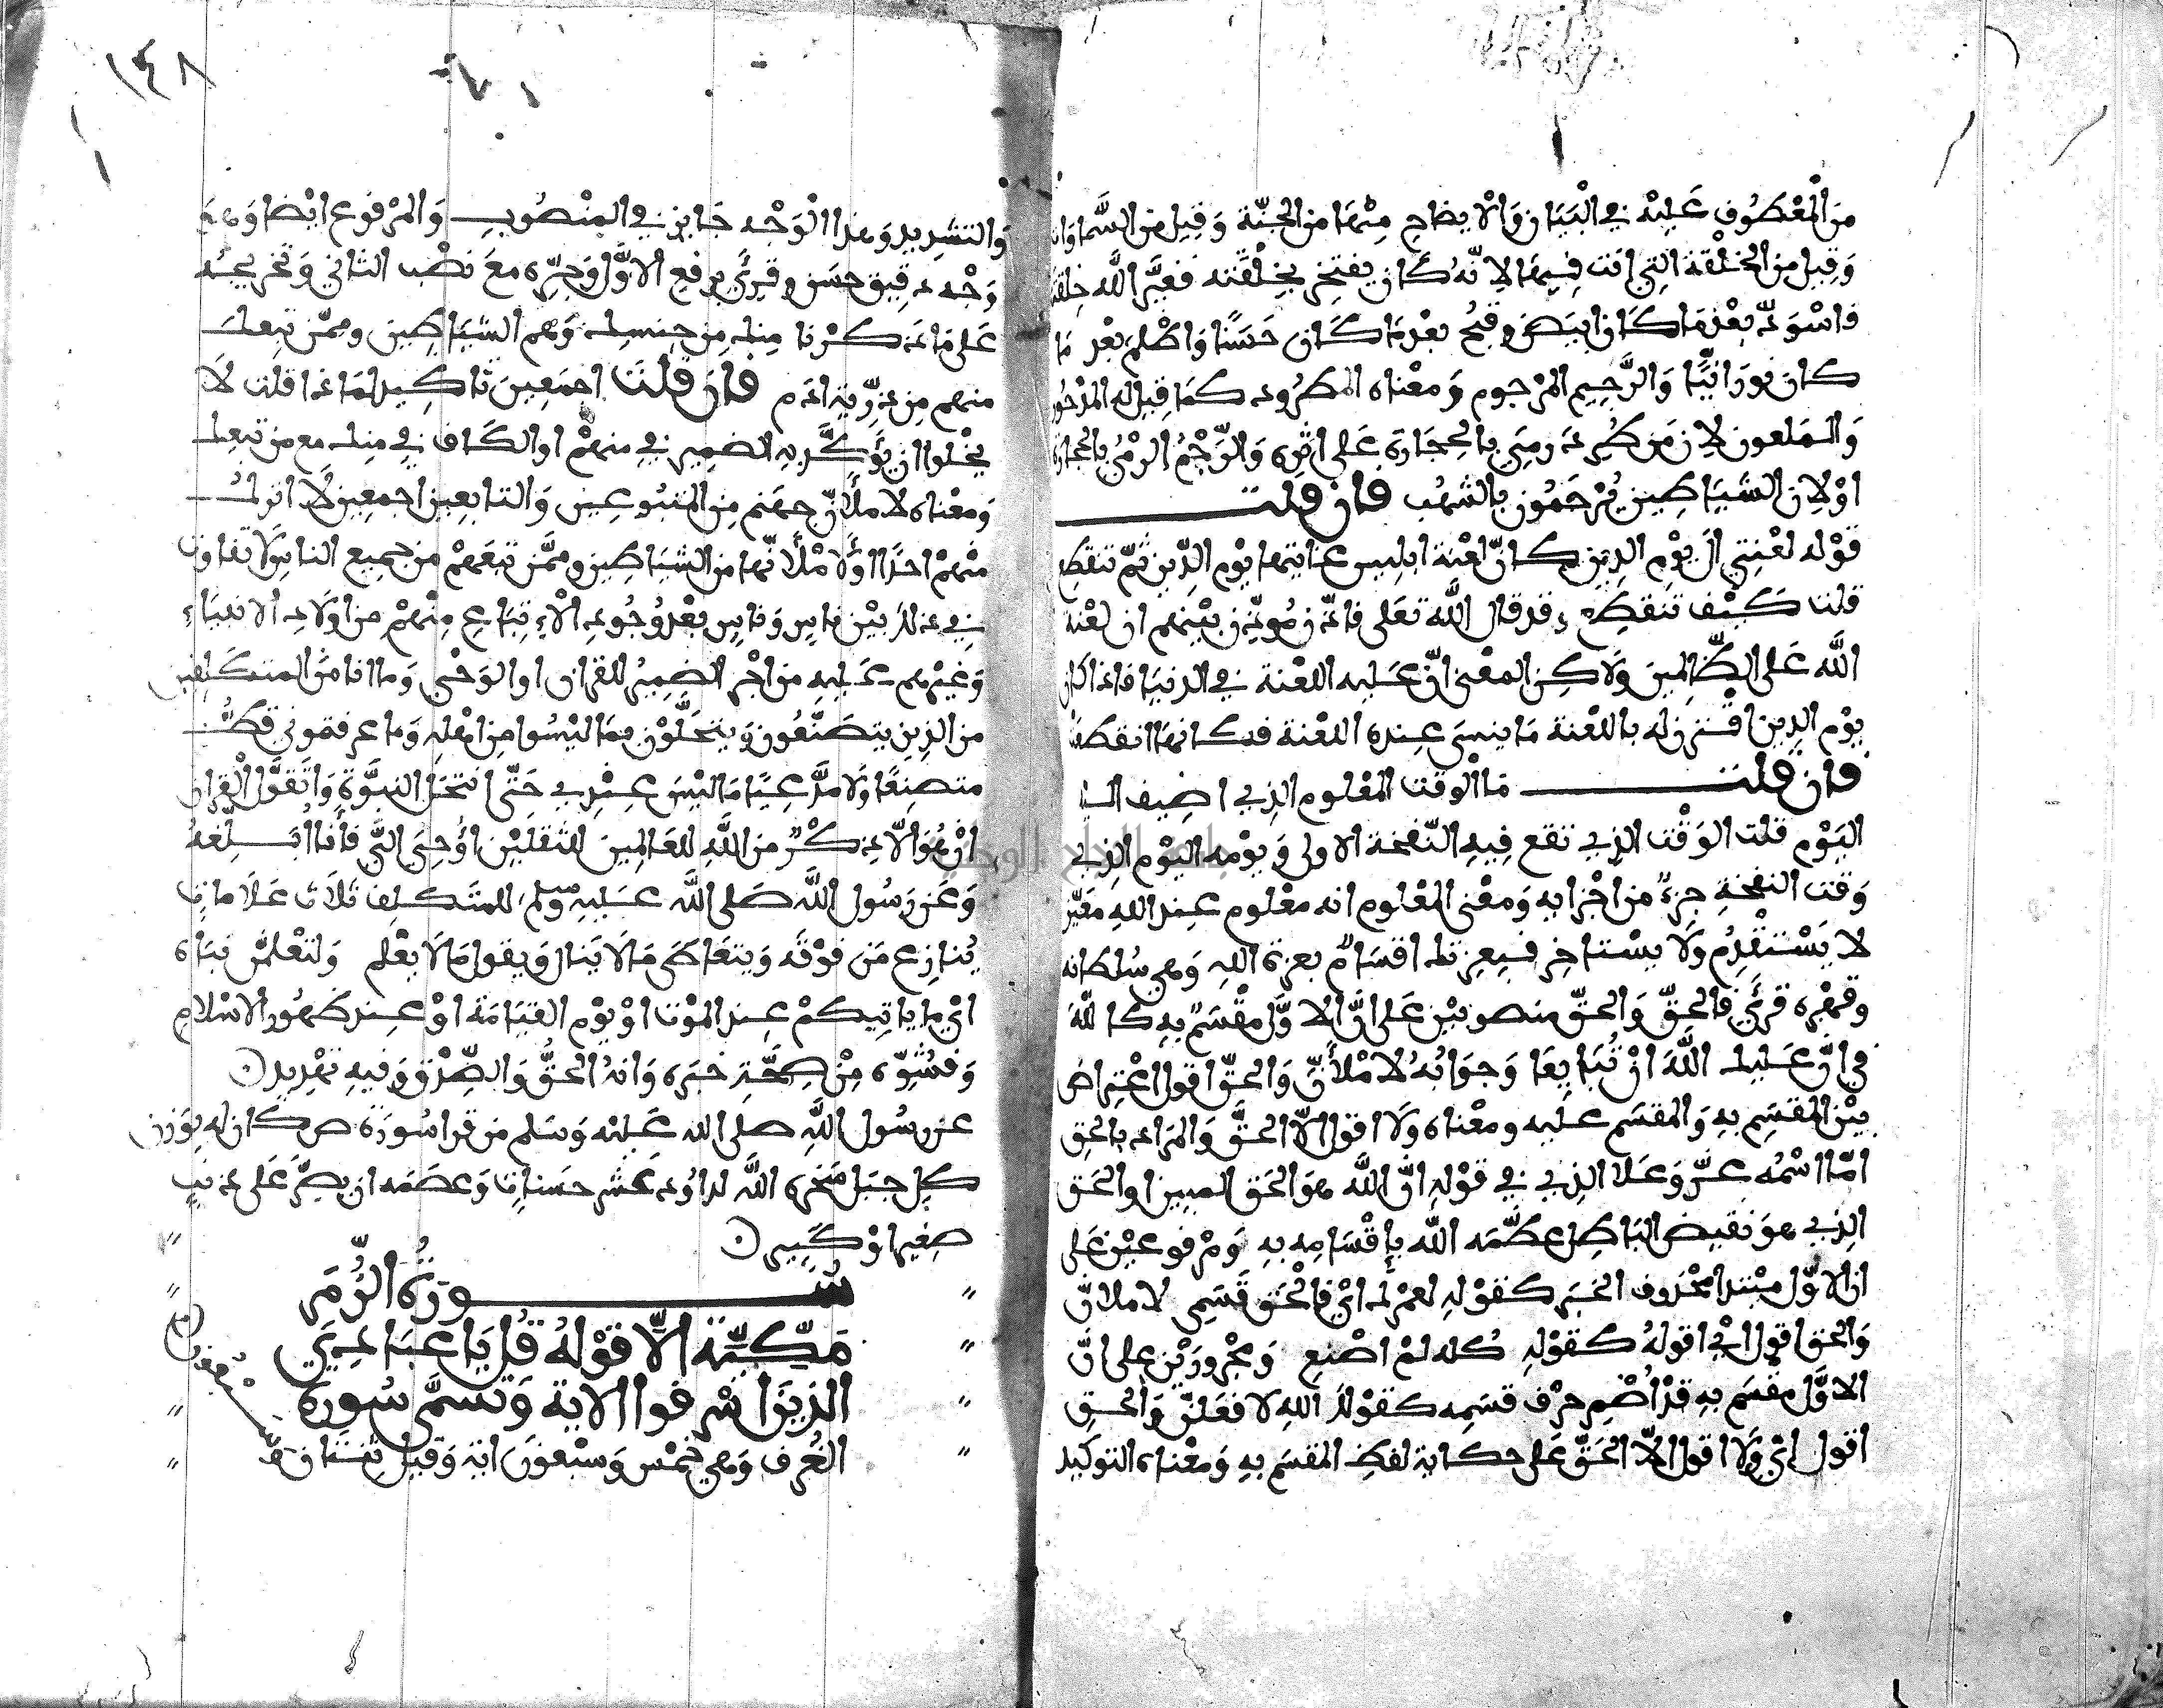 من المعطوف عليه في البيان والايضاح منها من الجنة وقيل من السماوات
وقيل من الخلقة التي انت فيها لانه كان يفتخر بخلقته فغير الله خلقته
فاسود بعد ما كان ابيض وقبح بعد ما كان حسنا واظلم بعد ما
كان نورانيا والرجيم المرجوم ومعناه المطرود كما قيل له المدحور
والملعون لان من طرد رمي بالحجارة على اثره والرجم الرمي بالحجارة
او لان الشياطين يرجمون بالشهب فان قلت
قوله لعنتي الى يوم الدين كان لعنة ابليس غايتها يوم الدين ثم تنقطع
قلت كيف تنقطع وقد قال الله تعلى فاذن موذن بينهم ان لعنة
الله على الظالمين ولاكن المعنى ان عليه اللعنة في الدنيا فاذا كان
يوم الدين اقترن له باللعنة ما ينسى عنده اللعنة فكانها انقطعت
فان قلت ما الوقت المعلوم الذي اضيف اليه
اليوم قلت الوقت الذي تقع فيه النفخة الاولى ويومه اليوم الذي
وقت النفخة جزء من اجزايه ومعنى المعلوم انه معلوم عند الله معين
لا يستقدم ولا يستاخر فبعزتك اقسام بعزة الله وهي سلطانه
وقهره قرئ فالحق والحق منصوبين على ان الاول مقسم به كالله
في ان عليك الله ان تبايعا وجوابه لاملأن والحق اقول اعتراض
بين المقسم به والمقسم عليه ومعناه ولا اقول الا الحق والمراد بالحق
اما اسمه عز وعلا الذي في قوله ان الله هو الحق المبين او الحق
الذي هو نقيض الباطل عظمه الله باقسامه به ومرفوعين على
ان الاول مبتدا محذوف الخبر كقوله لعمرك اي فالحق قسمي لاملان
والحق اقول اي اقوله كقوله كله لم اصنع ومجرورين على ان
الاول مقسم به قد اضمر حرف قسمه كقولك الله لافعلن والحق
اقول اي ولا اقول الا الحق على حكاية لفظ المقسم به ومعناه التوكيد
١٤٨
والتشديد وهذا الوجه جايز في المنصوب والمرفوع ايضا وهو
وجه دقيق حسن وقرئ برفع الاول وجره مع نصب الثاني وتخريجه
على ما ذكرنا منك من جنسك وهم الشياطين وممن تبعك
منهم من ذرية ادم فان قلت اجمعين تاكيد لما ذا قلت لا
يخلوا ان يؤكد به الضمير في منهم او الكاف في منك مع من تبعك
ومعناه لاملأن جهنم من المتبوعين والتابعين اجمعين لا اترك
منهم احدا او لاملأنها من الشياطين وممن تبعهم من جميع الناس لا تفاوت
في ذلك بين ناس وناس بعد وجود الاتباع منهم من اولاد الانبياء
وغيرهم عليه من اجر الضمير للقران او الوحي وما انا من المتكلفين
من الذين يتصنعون ويتحلون بما ليسوا من اهله وما عرفتموني قط
متصنعا ولا مدعيا ما ليس عندي حتى انتحل النبوة واتقول القران
ان هو الا ذكر من الله للعالمين للثقلين اوحي الي فأنا ابلغه
وعن رسول الله صلى الله عليه وسلم للمتكلف ثلاث علامات
ينازع من فوقه ويتعاطى ما لا ينال ويقول ما لا يعلم ولتعلمن نباه
اي ما ياتيكم عند الموت او يوم القيامة او عند ظهور الاسلام
وفشوه من صحة خبره وانه الحق والصدق وفيه تهديد
عن رسول الله صلى الله عليه وسلم من قرا سورة ص كان له بوزن
كل جبل سخره الله لداود عشر حسنات وعصمه ان يصر على ذنب
صغير او كبير
سورة الزمر
مكية الا قوله قل يا عبادي
الذين اسرفوا الاية وتسمى سورة
الغرف وهي خمس وسبعون اية وقيل ثنتان